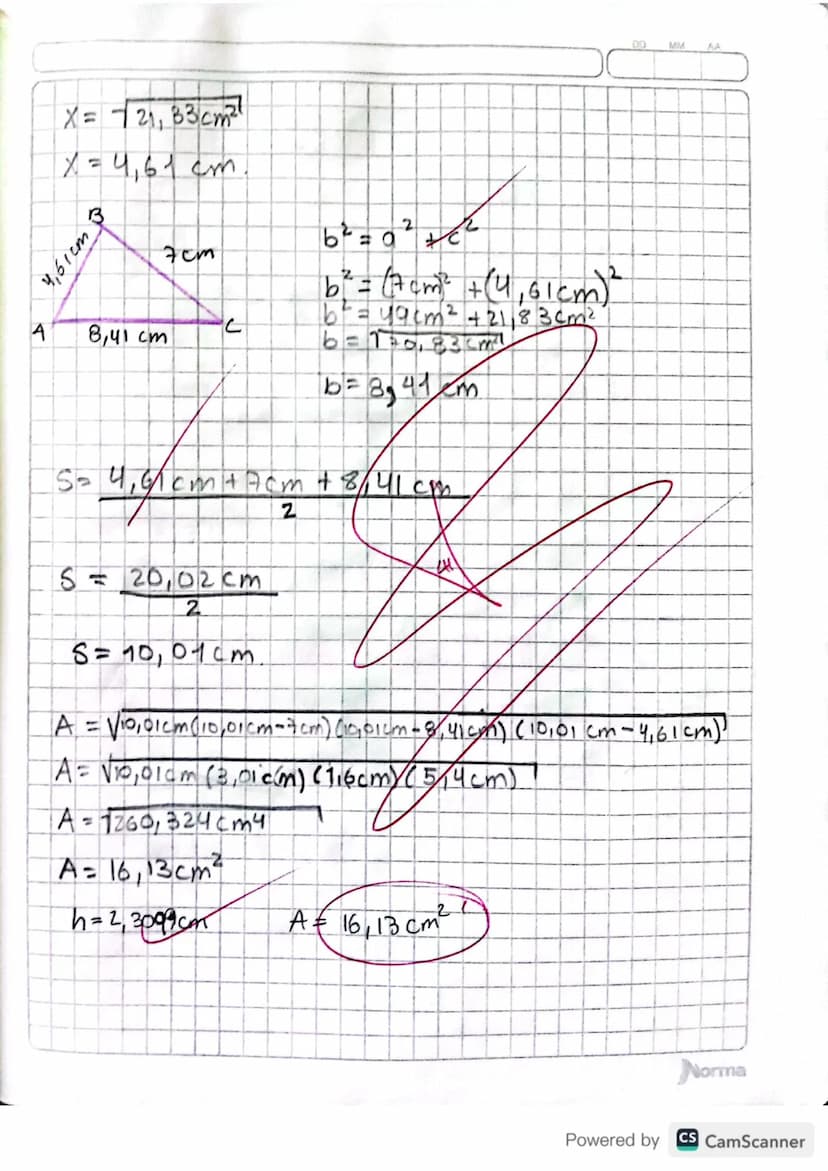 DD MM AA
X = √21,33cm²
X = 4,61 cm.
B
4,61cm
7cm
A
8,41 cm
C
b² = a² + c²
b² = (7cm)² + (4,61cm)²
b² = 49cm² + 21,83cm²
b = √70,83cm²
b = 8,41 cm
S = 4,61cm + 7cm + 8,41 cm
2
S = 20,02 cm
2
S = 10,01cm.
A = √10,01cm(10,01cm-7cm)(10,01cm-8,41cm)(10,01 cm-4,61cm)
A = √10,01cm (3,01cm) (1,6cm) (5,4cm)
A = √260,324cm4
A = 16,13cm²
h = 2,3099cm
A = 16,13 cm²
Norma
Powered by CS CamScanner